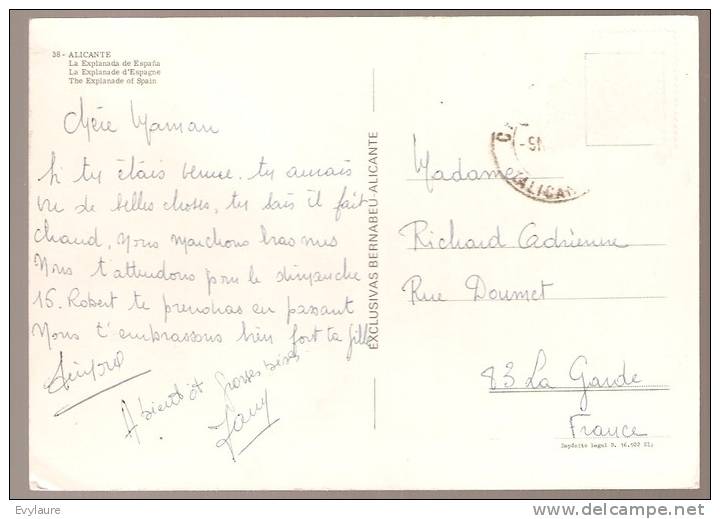 38 - ALICANTE
La Explanada de España
La Explanade d'Espagne
The Explanade of Spain
Chère Maman
Si tu étais venue, tu aurais
vu de belles choses, tu sais il fait
chaud, nous marchons bras nus
Nous t'attendons pour le dimanche
16. Robert te prendras en passant
Nous t'embrassons bien fort ta fille
A bientôt grosses bises
EXCLUSIVAS BERNABEU-ALICANTE
ALICAN
Madame
Richard Adrienne
Rue Doumet
83 La Garde
France
Depósito Legal B. 16.502 XI
Evylaure
DELCAMPE.NET